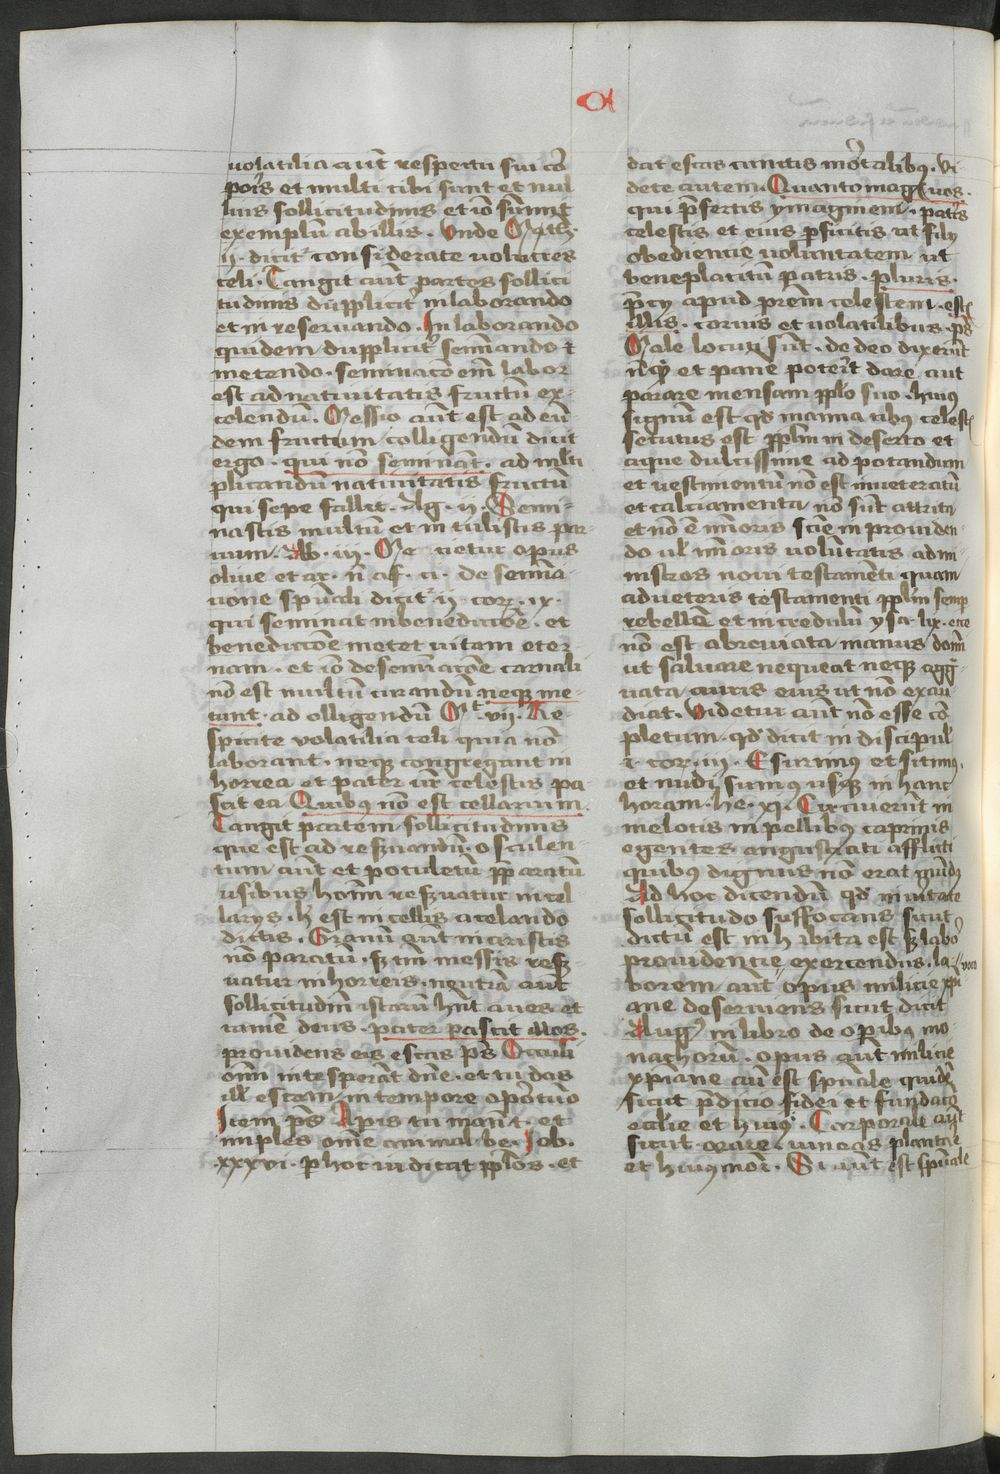 volatilia aūt respectu sui cor̄
poris et multi cibi sunt et nul
lius sollicitudinis et iō sumit̄
exemplū ab illis . Vnde Math .
ij . dicit᷑ considerate volucres
celi . Tangit aūt partes sollici
tudinis dupplicit᷑ in laborando
et in reseruando . In laborando
quidem dupplicit᷑ semīando ⁊
metendo . seminatō em̄ labor
est ad natiuitatis fructū ex-
colendū . Messio aūt est ad eū-
dem fructum colligendū dicit
ergo . qui nō semināt . ad ml̄ti
plicandū natiuitatis fructū
qui sepe fallit . Ag . ij . Semi-
nastis multū et intulistis par-
uum . Ab . iij . Me͞tietur opus
oliue et ar . n̄ af . ci . de semīa-
tione spūali dicit᷑ ij . cor . ix .
qui seminat in benedictōe . et
benedictōe metet vitam eter-
nam . et iō de seminatōe carnali
nō est multū curandū neqꝫ me-
tunt . ad olligendū Mt . vij . Re-
spicite volatilia celi quia nō
laborant . neqꝫ congregant in
horrea et pater vr̄ celestis pa-
scit ea Quibꝰ non est cellarium .
Tangit partem sollicitudinis
que est ad reseruandū . osculen-
tum aūt et potuletū pp̄aratū
vsibus hoīm reseruatur in cel
larijs . h̄ est in cellis a celando
dictis . Granū aūt in aristis
nō paratū . sꝫ tm̄ messis reser
uatur in horreis . neutrā aūt
sollicitudinē istarū hn̄t aues . et
tamē deus . pater pascit illos .
prouidens eis escas ps̄ Oculi
oīm in te sperāt dn̄e . et tu das
ill᷑ escam in tempore oportuo
Item ps̄ Apis tu manū t . et
imples om̄e animal be . Job .
xxxvi . per hoc iudicat ppl̄os . et
dat escas cunctis mortalibꝰ . Vi
dete autem . Quanto magꝭ vos .
qui p̄fertis ymaginem . patris
celestis et eius perficitis vt filij
obediencie voluntatem . vt
beneplacitū patris . pluris .
p̄cij apud prēm celestem . estis
illis . coruis et volatilibus . ps̄
Male locuti sūt . de deo dixerūt
nūqͥd et panē poterit dare aut
parare mensam ppl̄o suo . huius
signū est qd̄ manna cibꝰ celestꝭ
secutus est ppl̄m in deserto et
aque dulcissime ad potandum
et vestimentū nō est inueteratū
et calciamenta nō sūt attrita
et nō ē minoris sciēe in prouiden-
do ul᷑ minoris voluntatis ad mi-
nistros noui testamenti quam
ad veteris testamenti ppl̄m semp
rebellē et incredulū ysa . lix . ecce
nō est abreuiata manus dom̄i
vt saluare nequeat neqꝫ agg̃-
uata auris eius vt nō exau-
diat . Videtur aūt nō esse cō-
pletum . qd̄ dicit in discipul᷑
i . cor . iiij . Esurimꝰ et sitimꝰ .
et nudi sumꝰ vsqꝫ in hanc
horam . he . xi . Circuierūt in
melotis in pellibꝰ caprinis
egentes angustiati afflicti
quibꝰ dignus nō erat mūdꝰ
Ad hoc dicendū qd̄ in vitate
sollicitudo suffocans sicut
dictū est inhibita est sꝫ labor̄
prouidencie exercendus . la-
borem aūt opus milicie xpi-
ane deseruiens sicut dicit
Augꝰ in libro de operibꝰ mo-
nachorū . opus aūt milicie
xp̄iane aūt est spūale quidē
sicut p̄dicō fidei et fundacō
ecclīe et huiꝰ . Corporale aūt
sicut . orare . vineas plantare
et huiꝰmōi . Si aūt est spūale